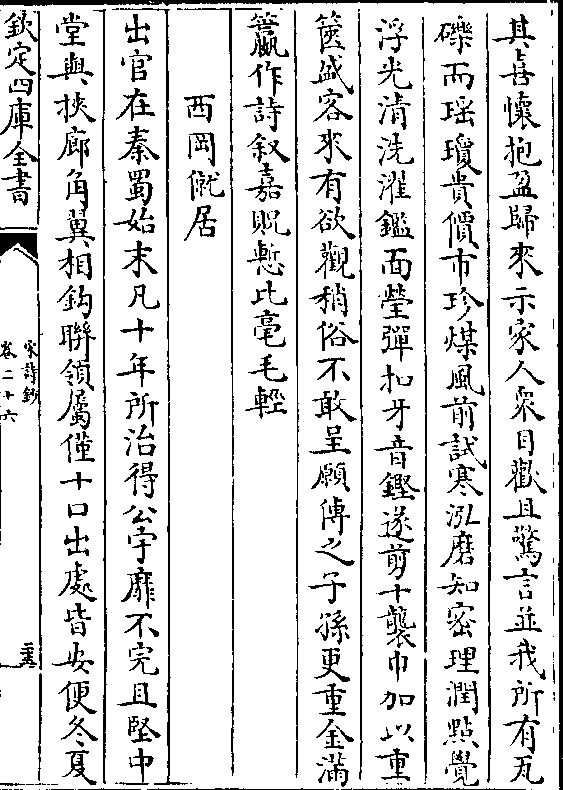 其喜懷抱盈歸來示家人衆目歡且驚言並我所有瓦
礫而瑶瓊貴價市珍煤風前試寒泓磨知密理潤㸃覺
浮光清洗濯鑑面瑩彈扣牙音鏗遂剪十襲巾加以重
篋盛客來有欲觀稍俗不敢呈願傳之子孫更重金滿
籯作詩叙嘉貺慙比毫毛輕
西岡僦居
出官在秦蜀始末凡十年所治得公宇靡不完且堅中
堂與挾廊角翼相鈎聯領屬僅十口出處皆安便冬夏
欽定四庫全書
宋詩鈔
卷二十六